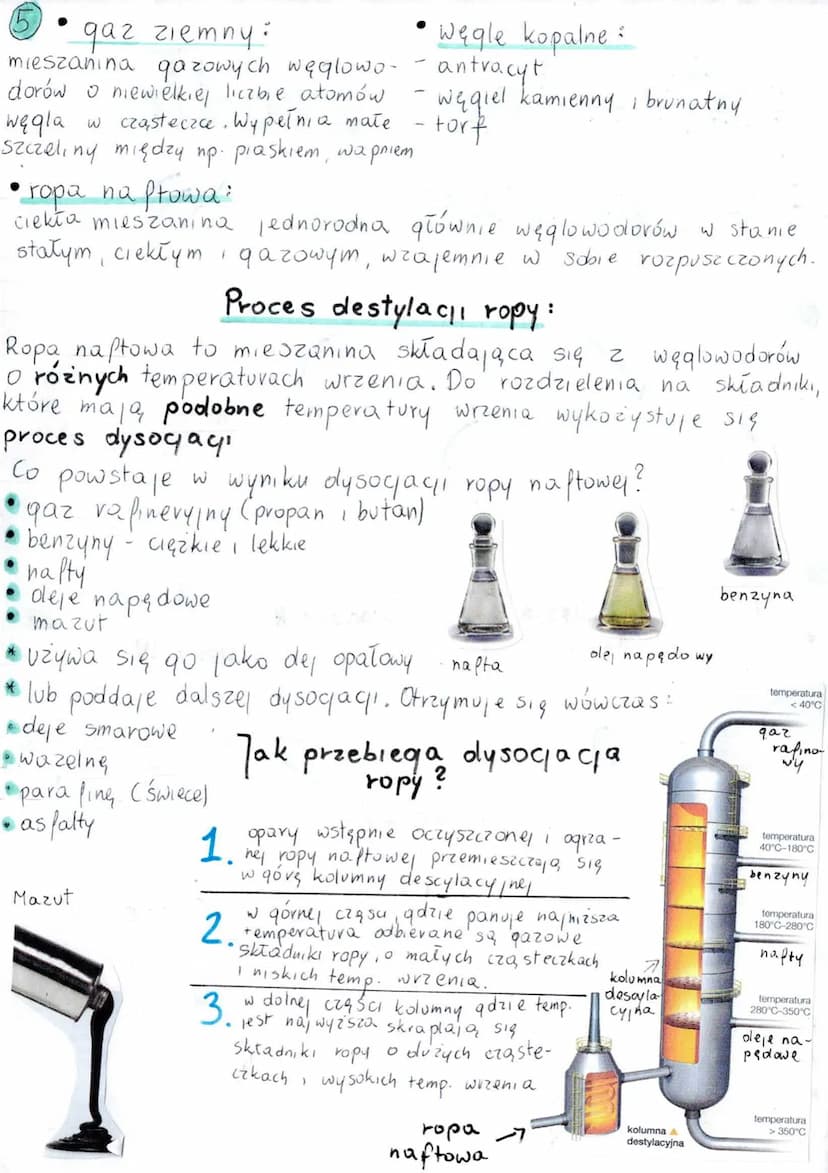 5
• gaz ziemny:
mieszanina gazowych węglowo-
dorów o niewielkiej liczbie atomów
węgla w cząsteczce. Wypełnia małe
szczeliny między np. piaskiem, wapniem
• węgle kopalne:
- antracyt
- węgiel kamienny i brunatny
- torf
• ropa naftowa:
ciekła mieszanina jednorodna głównie węglowodorów w stanie
stałym, ciekłym i gazowym, wzajemnie w sobie rozpuszczonych.
Proces destylacji ropy:
Ropa naftowa to mieszanina składająca się z węglowodorów
o różnych temperaturach wrzenia. Do rozdzielenia na składniki,
które mają podobne temperatury wrzenia wykożystuje się
proces dysocjacji
Co powstaje w wyniku dysocjacji ropy naftowej?
• gaz rafineryjny (propan i butan)
• benzyny - ciężkie i lekkie
• nafty
• oleje napędowe
• mazut
* używa się go jako olej opałowy
* lub poddaje dalszej dysocjacji. Otrzymuje się wówczas:
• oleje smarowe
• wazelnę
• parafinę (świece)
• asfalty
nafta
olej napędowy
benzyna
Jak przebiega dysocjacja
ropy?
1. opary wstępnie oczyszczonej i ogrza-
nej ropy naftowej przemieszczają się
w górę kolumny descylacyjnej
2. w górnej częsu, gdzie panuje najniższa
temperatura odbierane są gazowe
składniki ropy, o małych cząsteczkach
i niskich temp. wrzenia.
3. w dolnej części kolumny gdzie temp.
jest najwyższa skraplają się
składniki ropy o dużych cząste-
czkach i wysokich temp. wrzenia
Mazut
temperatura
< 40°C
gaz
rafino-
wy
temperatura
40°C–180°C
benzyny
temperatura
180°C–280°C
nafty
kolumna
descyla-
cyjna
temperatura
280°C–350°C
oleje na-
pędowe
temperatura
> 350°C
kolumna
destylacyjna
ropa
naftowa